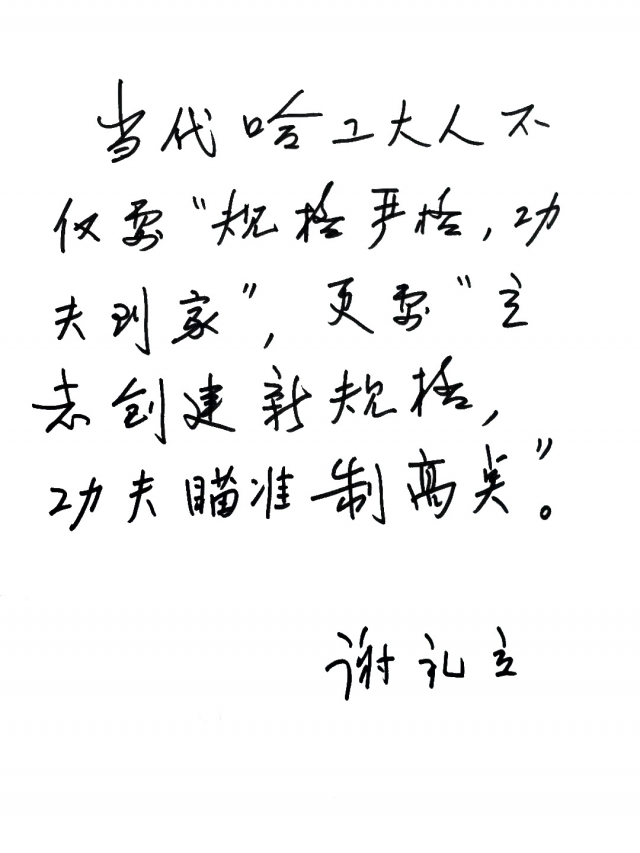 当代哈工大人不
仅要“规格严格,功
夫到家”,更要“立
志创建新规格,
功夫瞄准制高点”。
谢礼立